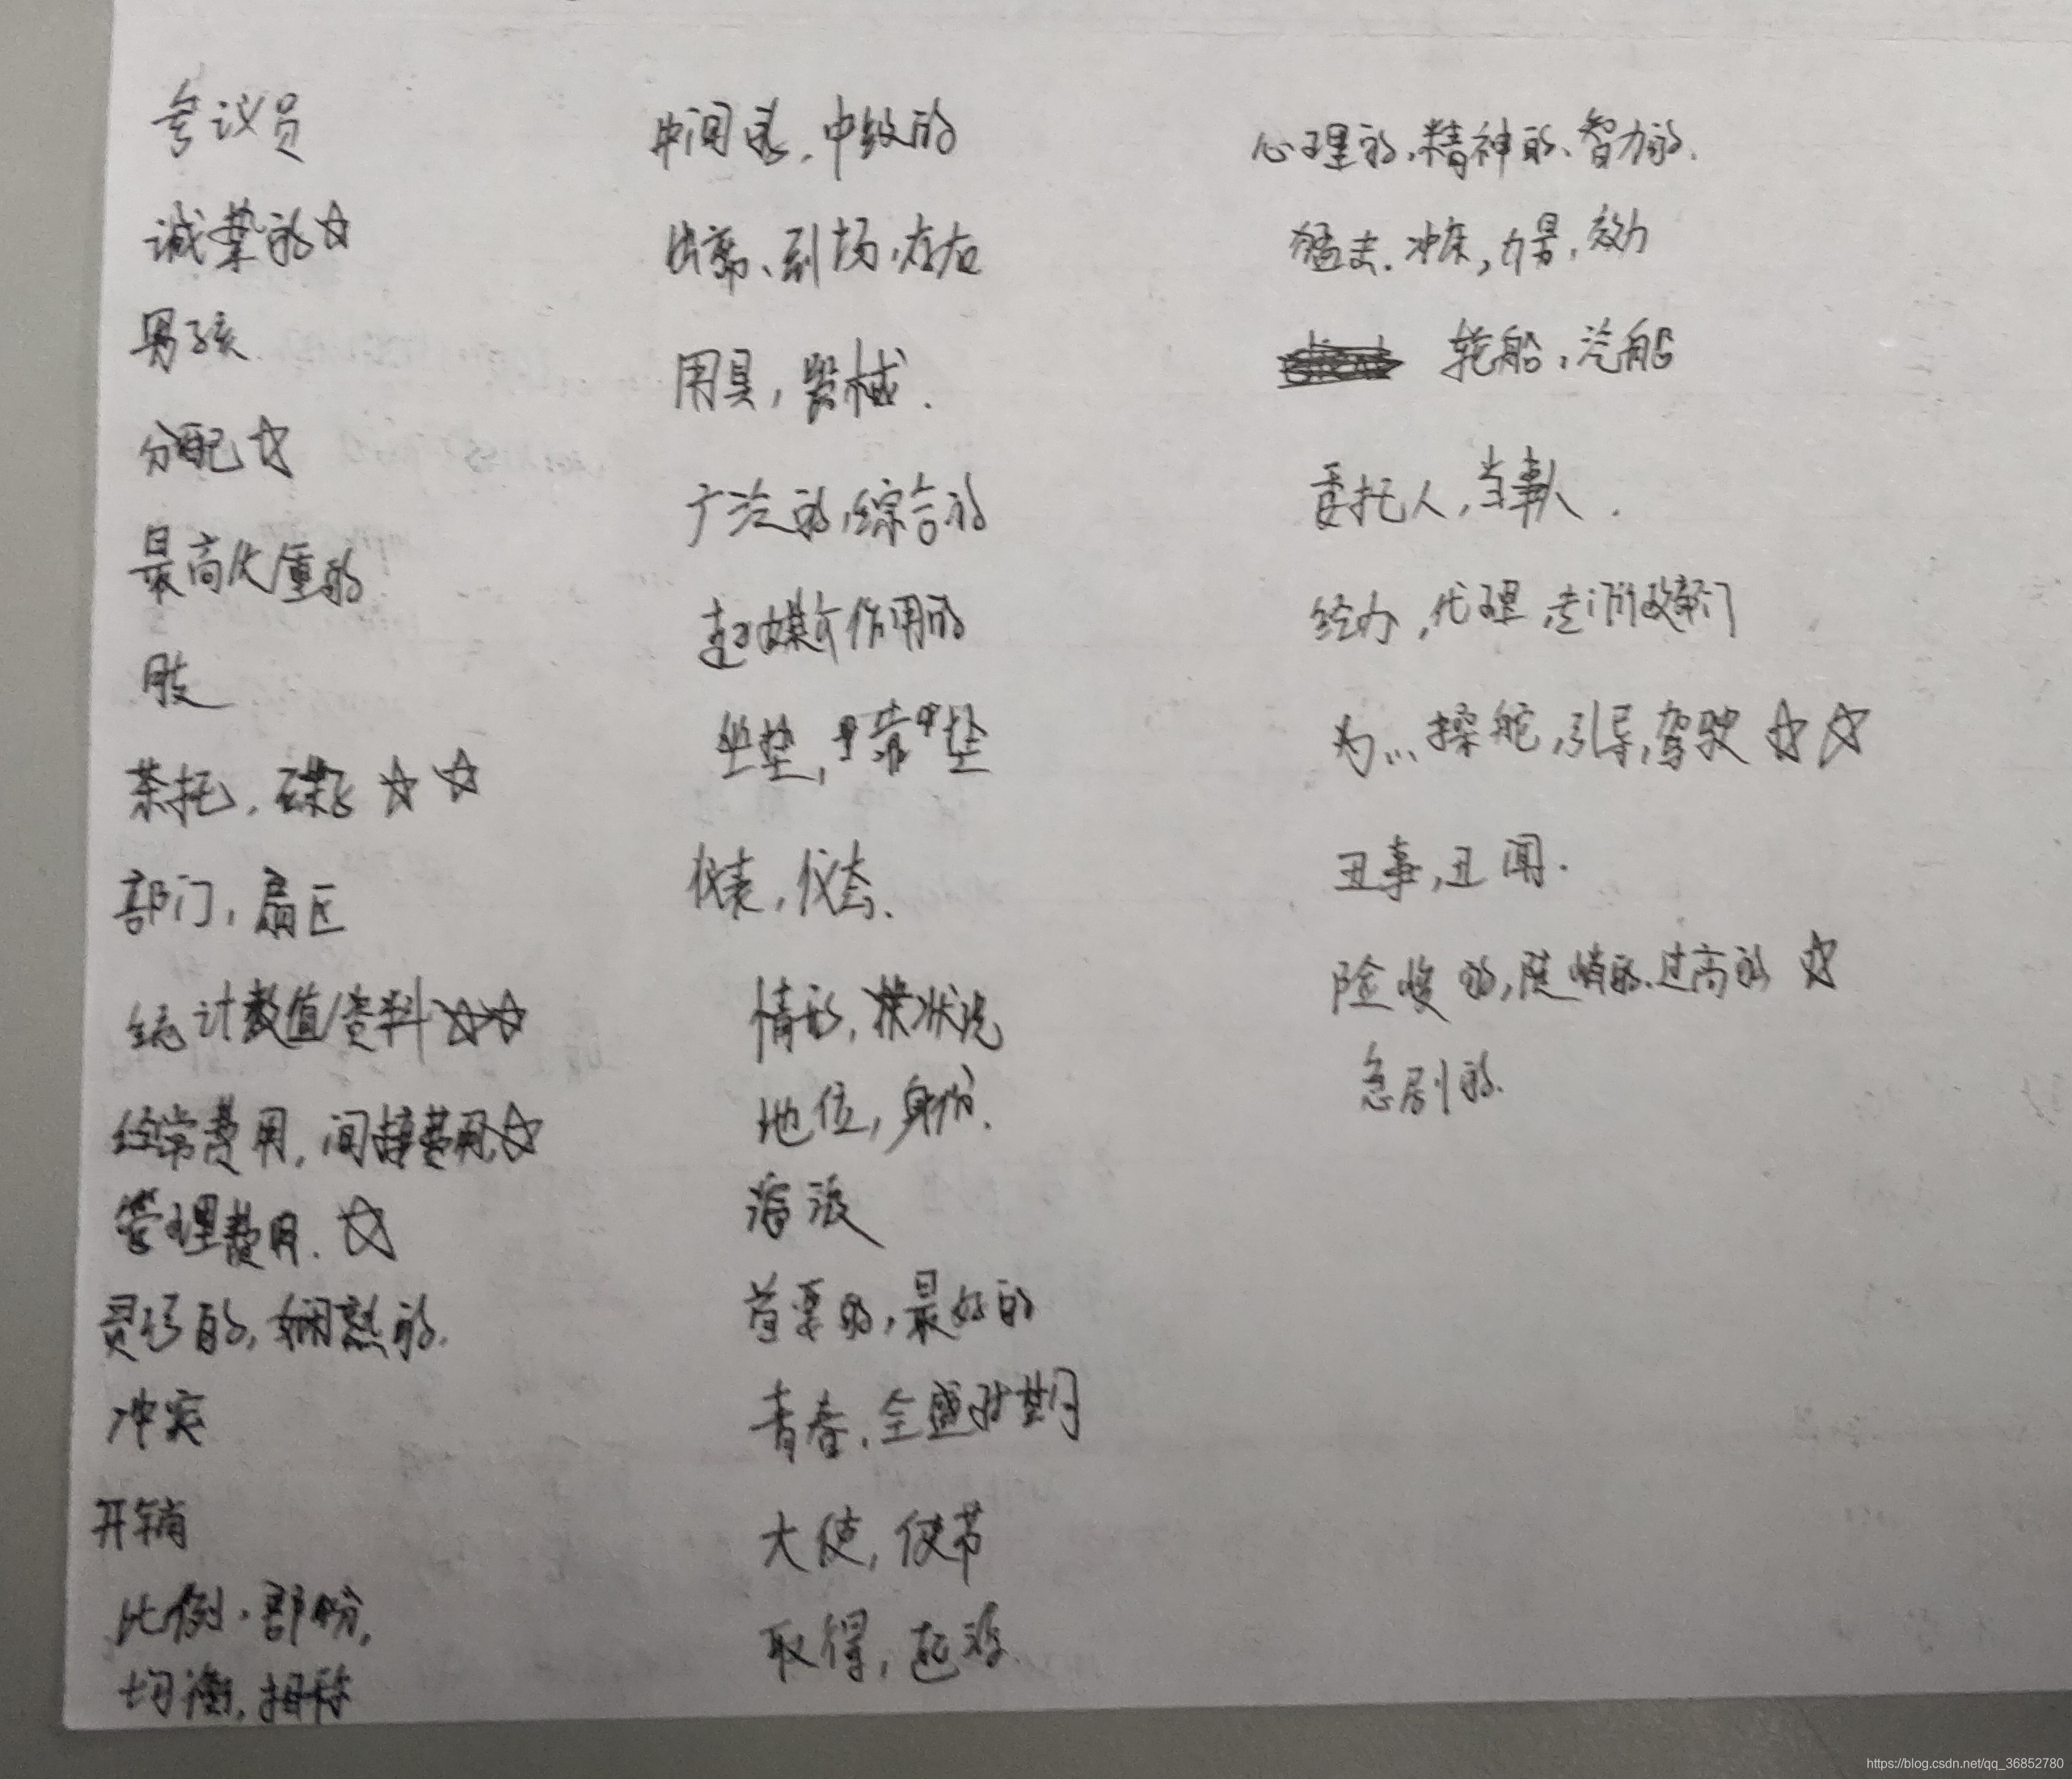 参议员
诚挚的☆
男孩
分配☆
最高/严重的
肢
茶托，碟 ☆ ☆
部门，扇区
统计数值/资料☆☆
经常费用，间接费用☆
管理费用．☆
灵巧的，娴熟的．
冲突
开销
比例、部份，
均衡，相称
中间，中级的
出席、到场，存在
用具，器械．
广泛的，综合的
起媒介作用的
坐垫，靠垫
仪表，仪态．
情形，状况
地位，身份．
海滨
首要的，最好的
青春，全盛时期
大使，使节
取得，起源
心理的，精神的、智力的．
猛击．冲床，力量，效力
轮船，汽船
委托人，当事人．
经办，代理，专门行政部门
为… 操舵，引导，驾驶 ☆ ☆
丑事，丑闻．
险峻的，陡峭的．过高的 ☆
急剧的．
https://blog.csdn.net/qq_36852780